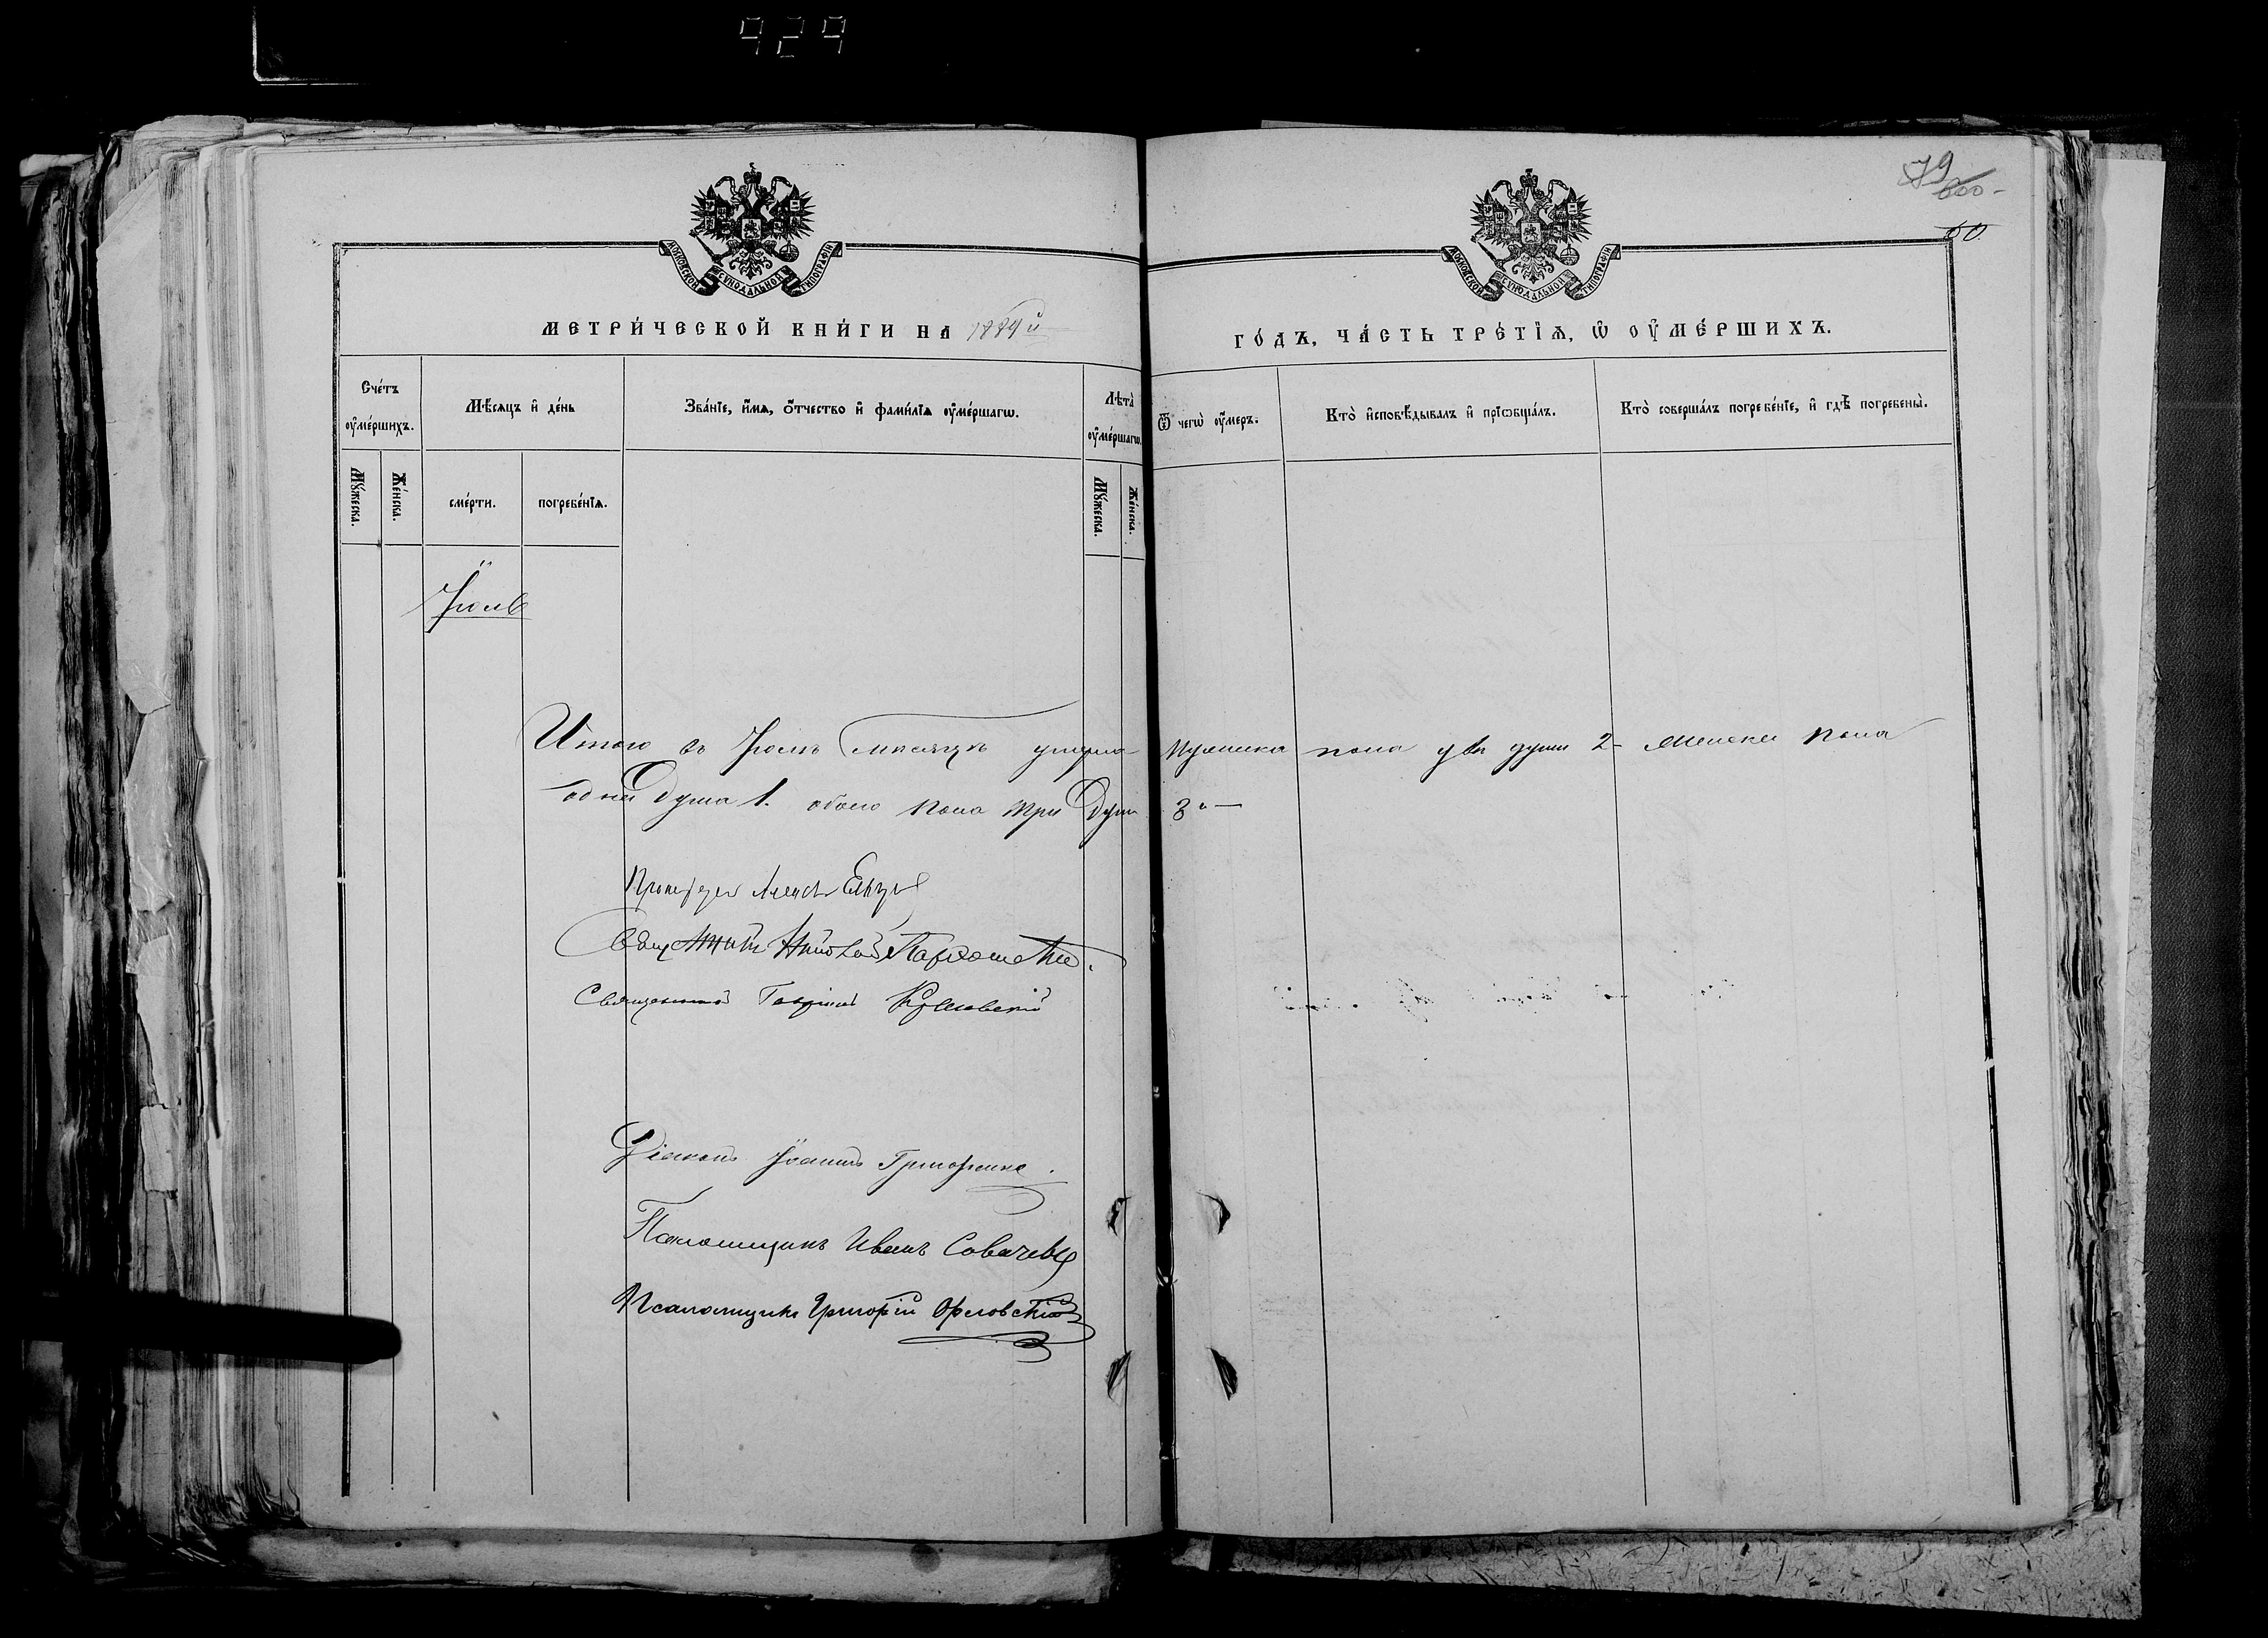 929
79
600-
60.
МОСКОВСКОЙ СѴНОДАЛЬНОЙ ТИПОГРАФІИ
МОСКОВСКОЙ СѴНОДАЛЬНОЙ ТИПОГРАФІИ
МЕТРИ́ЧЕСКОЙ КНИ́ГИ НА 1889й
ГО́ДЪ, ЧА́СТЬ ТРЕ́ТІѦ, Ѡ҆ ОУ҆МЕ́РШИХЪ.
Сче́тъ оу҆ме́ршихъ.
Мѣ́сѧцъ и҆ де́нь
Зва́нїе, и҆́мѧ, ѻ҆́тчество и҆ фами́лїѧ оу҆ме́ршагѡ.
Лѣта̀ оу҆ме́ршагѡ.
Ѿ чегѡ̀ оу҆́меръ.
Кто̀ и҆сповѣ́дывалъ и҆ прїѡбща́лъ.
Кто̀ соверша́лъ погребе́нїе, и҆ гдѣ̀ погребены̀.
Мꙋ́жеска.
Же́нска.
сме́рти.
погребе́нїѧ.
Мꙋ́жеска.
Же́нска.
Іюль
Итого въ Іюлѣ мѣсяцѣ умерло мужеска пола двѣ души 2 - женска пола
одна душа 1. обоего пола три души 3. —
Священникъ Николай
Священникъ Гавріилъ
Діаконъ Іоаннъ Григоренко.
Псаломщикъ Иванъ
Псаломщикъ Григорій Орловскій